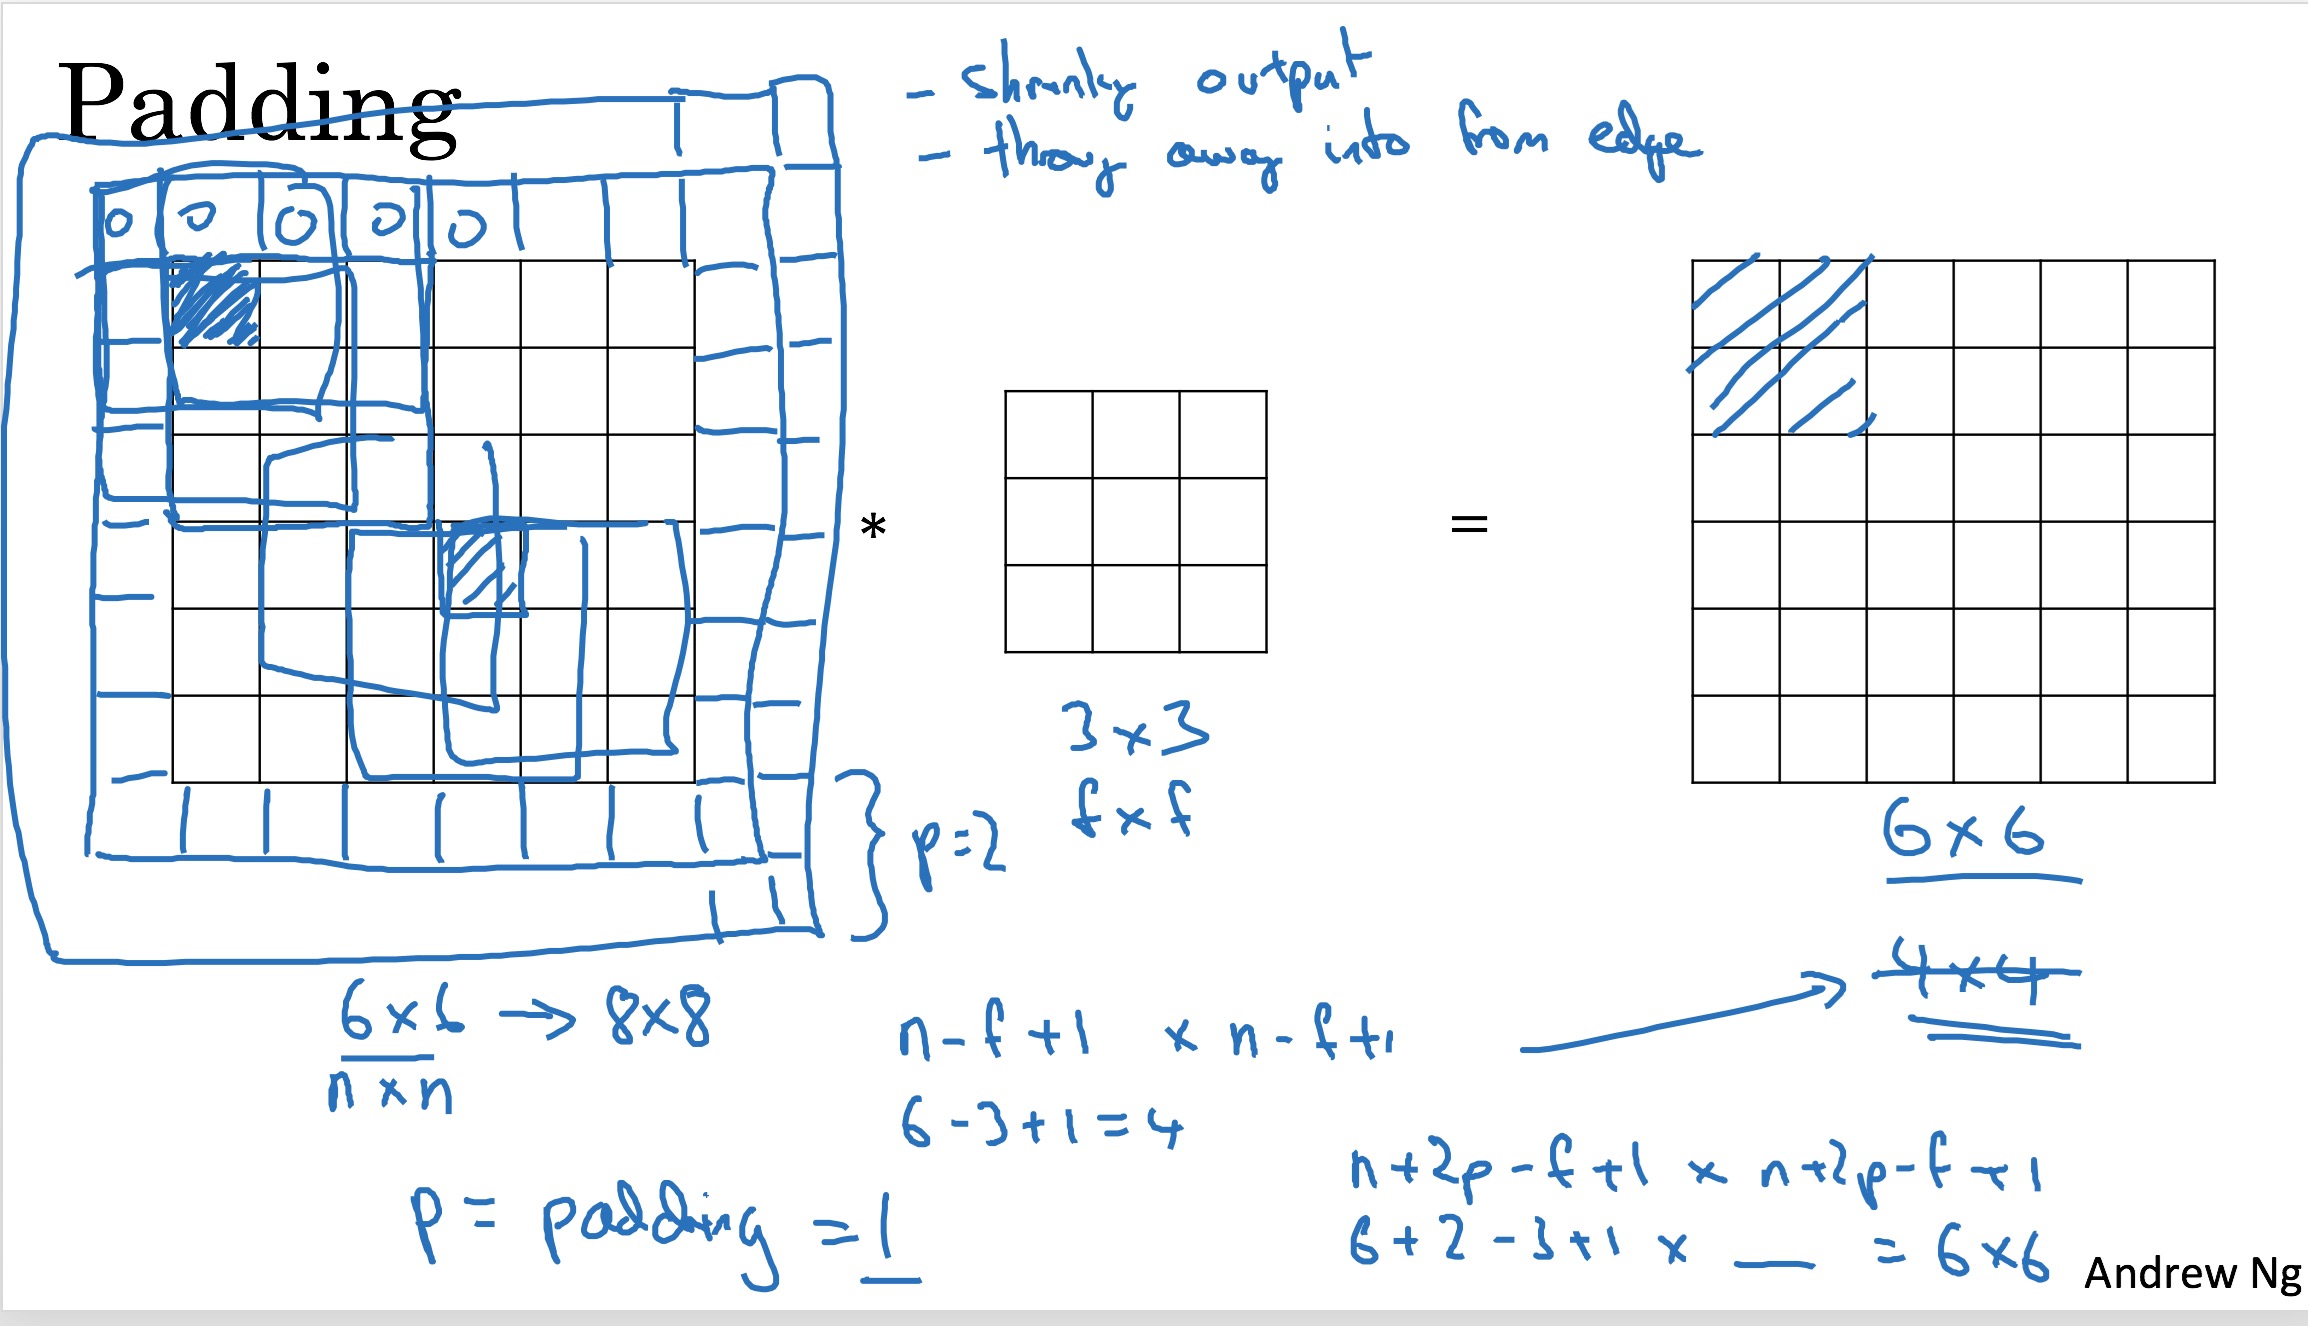 Padding
- shrinky output
- throw away info from edge
0 0 0 0 0
*
=
3 x 3
f x f
p=2
6 x 6
4 x 4
6 x 6 → 8x8
n x n
n - f + 1 x n - f + 1
6 - 3 + 1 = 4
p = padding = 1
n + 2p - f + 1 x n + 2p - f + 1
6 + 2 - 3 + 1 x __ = 6 x 6
Andrew Ng